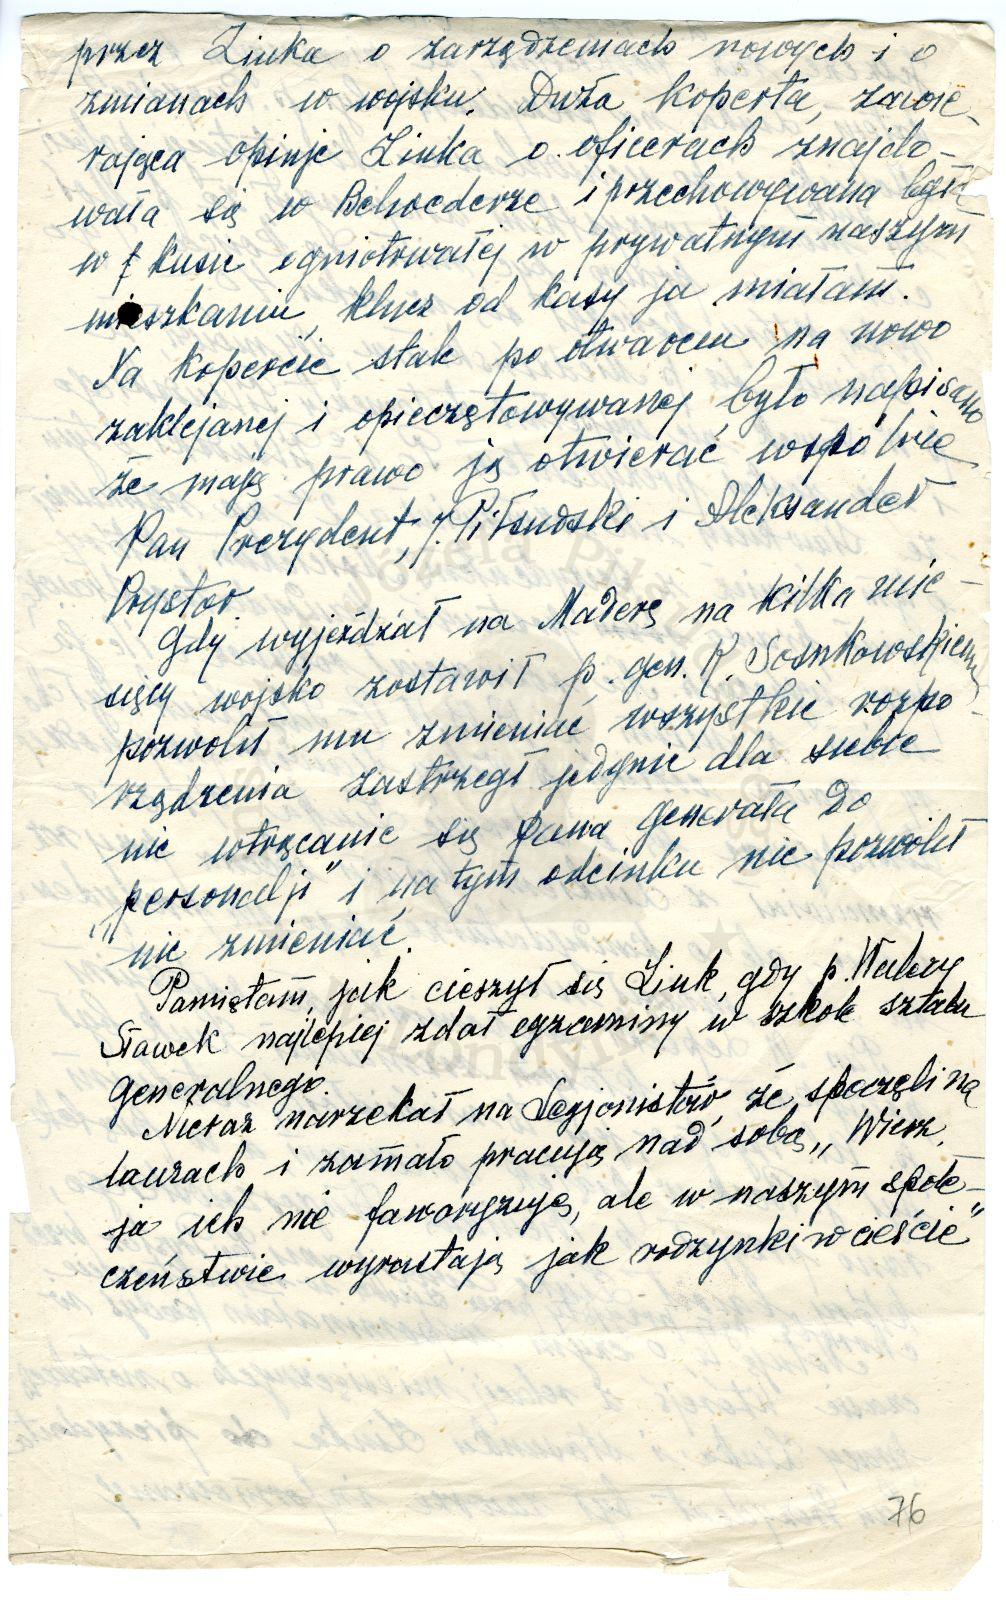 przez Ziuka o zarządzeniach nowych i o
zmianach w wojsku. Duża koperta, zawie-
rająca opinje Ziuka o oficerach znajdo-
wała się w Belwederze i przechowywana była
w kasie ogniotrwałej w prywatnym naszym
mieszkaniu, klucz od kasy ja miałam.
Na kopercie stale po otwarciu na nowo
zaklejanej i opieczętowywanej, było napisano
że mają prawo ją otwierać wspólnie
Pan Prezydent, J. Piłsudski i Aleksander
Prystor
Gdy wyjeżdżał na Maderę na kilka mie-
sięcy wojsko zostawił p. gen. K. Sosnkowskiemu
pozwolił mu zmieniać wszystkie rozpo-
rządzenia zastrzegł jedynie dla siebie
nie wtrącanie się Pana Generała do
"personalji" i na tym odcinku nie pozwolił
nic zmieniać.
Pamiętam, jak cieszył się Ziuk, gdy p. Walery
Sławek najlepiej zdał egzaminy w szkole sztabu
generalnego.
Nieraz narzekał na Legjonistów, że spoczęli na
laurach i zamało pracują nad sobą „Wiesz,
ja ich nie faworyzuję, ale w naszym społe-
czeństwie wyrastają jak rodzynki w cieście"
76